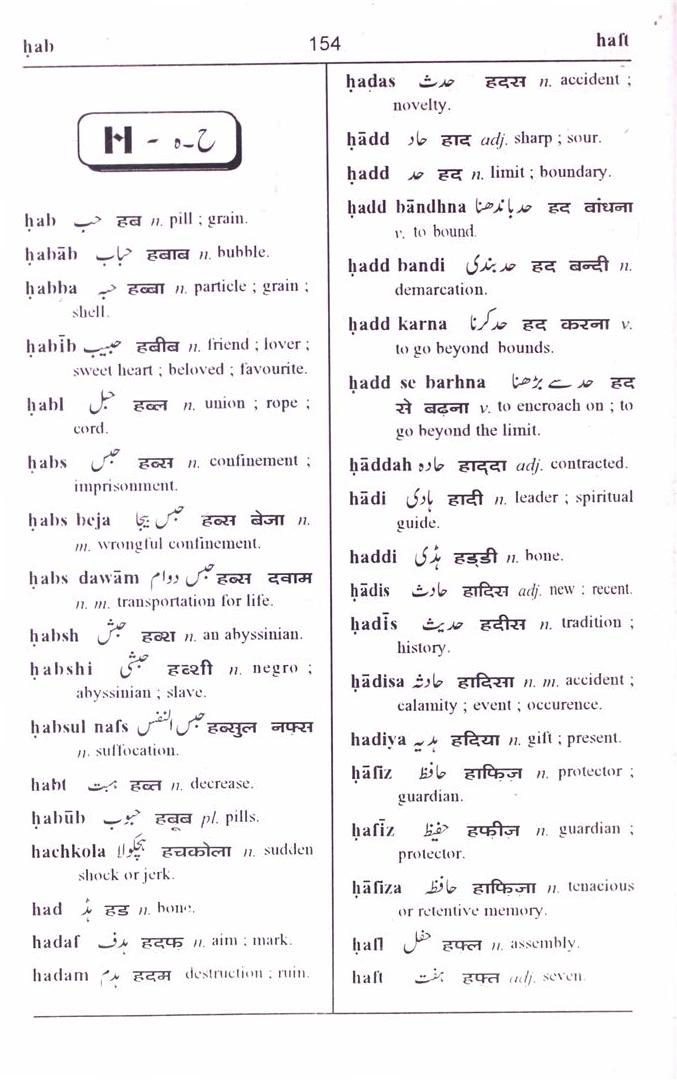 ḥab 154 haft
H - ح-ہ
ḥab حب हब n. pill ; grain.
ḥabāb حباب हबाब n. bubble.
ḥabba حبہ हब्बा n. particle ; grain ;
shell.
ḥabīb حبیب हबीब n. friend ; lover ;
sweet heart ; beloved ; favourite.
ḥabl حبل हब्ल n. union ; rope ;
cord.
ḥabs حبس हब्स n. confinement ;
imprisonment.
ḥabs beja حبس بیجا हब्स बेजा n.
m. wrongful confinement.
ḥabs dawām حبس دوام हब्स दवाम
n. m. transportation for life.
ḥabsh حبش हब्श n. an abyssinian.
ḥabshi حبشی हब्शी n. negro ;
abyssinian ; slave.
ḥabsul nafs حبس النفس हब्सुल नफ्स
n. suffocation.
habt ہبت हब्त n. decrease.
ḥabūb حبوب हबूब pl. pills.
hachkola ہچکولا हचकोला n. sudden
shock or jerk.
had ہڈ हड n. bone.
hadaf ہدف हदफ n. aim ; mark.
hadam ہدم हदम destruction ; ruin.
ḥadas حدث हदस n. accident ;
novelty.
ḥādd حاد हाद adj. sharp ; sour.
ḥadd حد हद n. limit ; boundary.
ḥadd bāndhna حد باندھنا हद बांधना
v. to bound.
ḥadd bandi حد بندی हद बन्दी n.
demarcation.
ḥadd karna حد کرنا हद करना v.
to go beyond bounds.
ḥadd se barhna حد سے بڑھنا हद
से बढ़ना v. to encroach on ; to
go beyond the limit.
ḥāddah حادہ हाद्दा adj. contracted.
hādi ہادی हादी n. leader ; spiritual
guide.
haddi ہڈی हड्डी n. bone.
ḥādis حادث हादिस adj. new ; recent.
ḥadīs حدیث हदीस n. tradition ;
history.
ḥādisa حادثہ हादिसा n. m. accident ;
calamity ; event ; occurence.
hadiya ہدیہ हदिया n. gift ; present.
ḥāfiz حافظ हाफिज़ n. protector ;
guardian.
ḥafīz حفیظ हफीज n. guardian ;
protector.
ḥāfiza حافظہ हाफिज़ा n. tenacious
or retentive memory.
ḥafl حفل हफ्ल n. assembly.
haft ہفت हफ्त adj. seven.